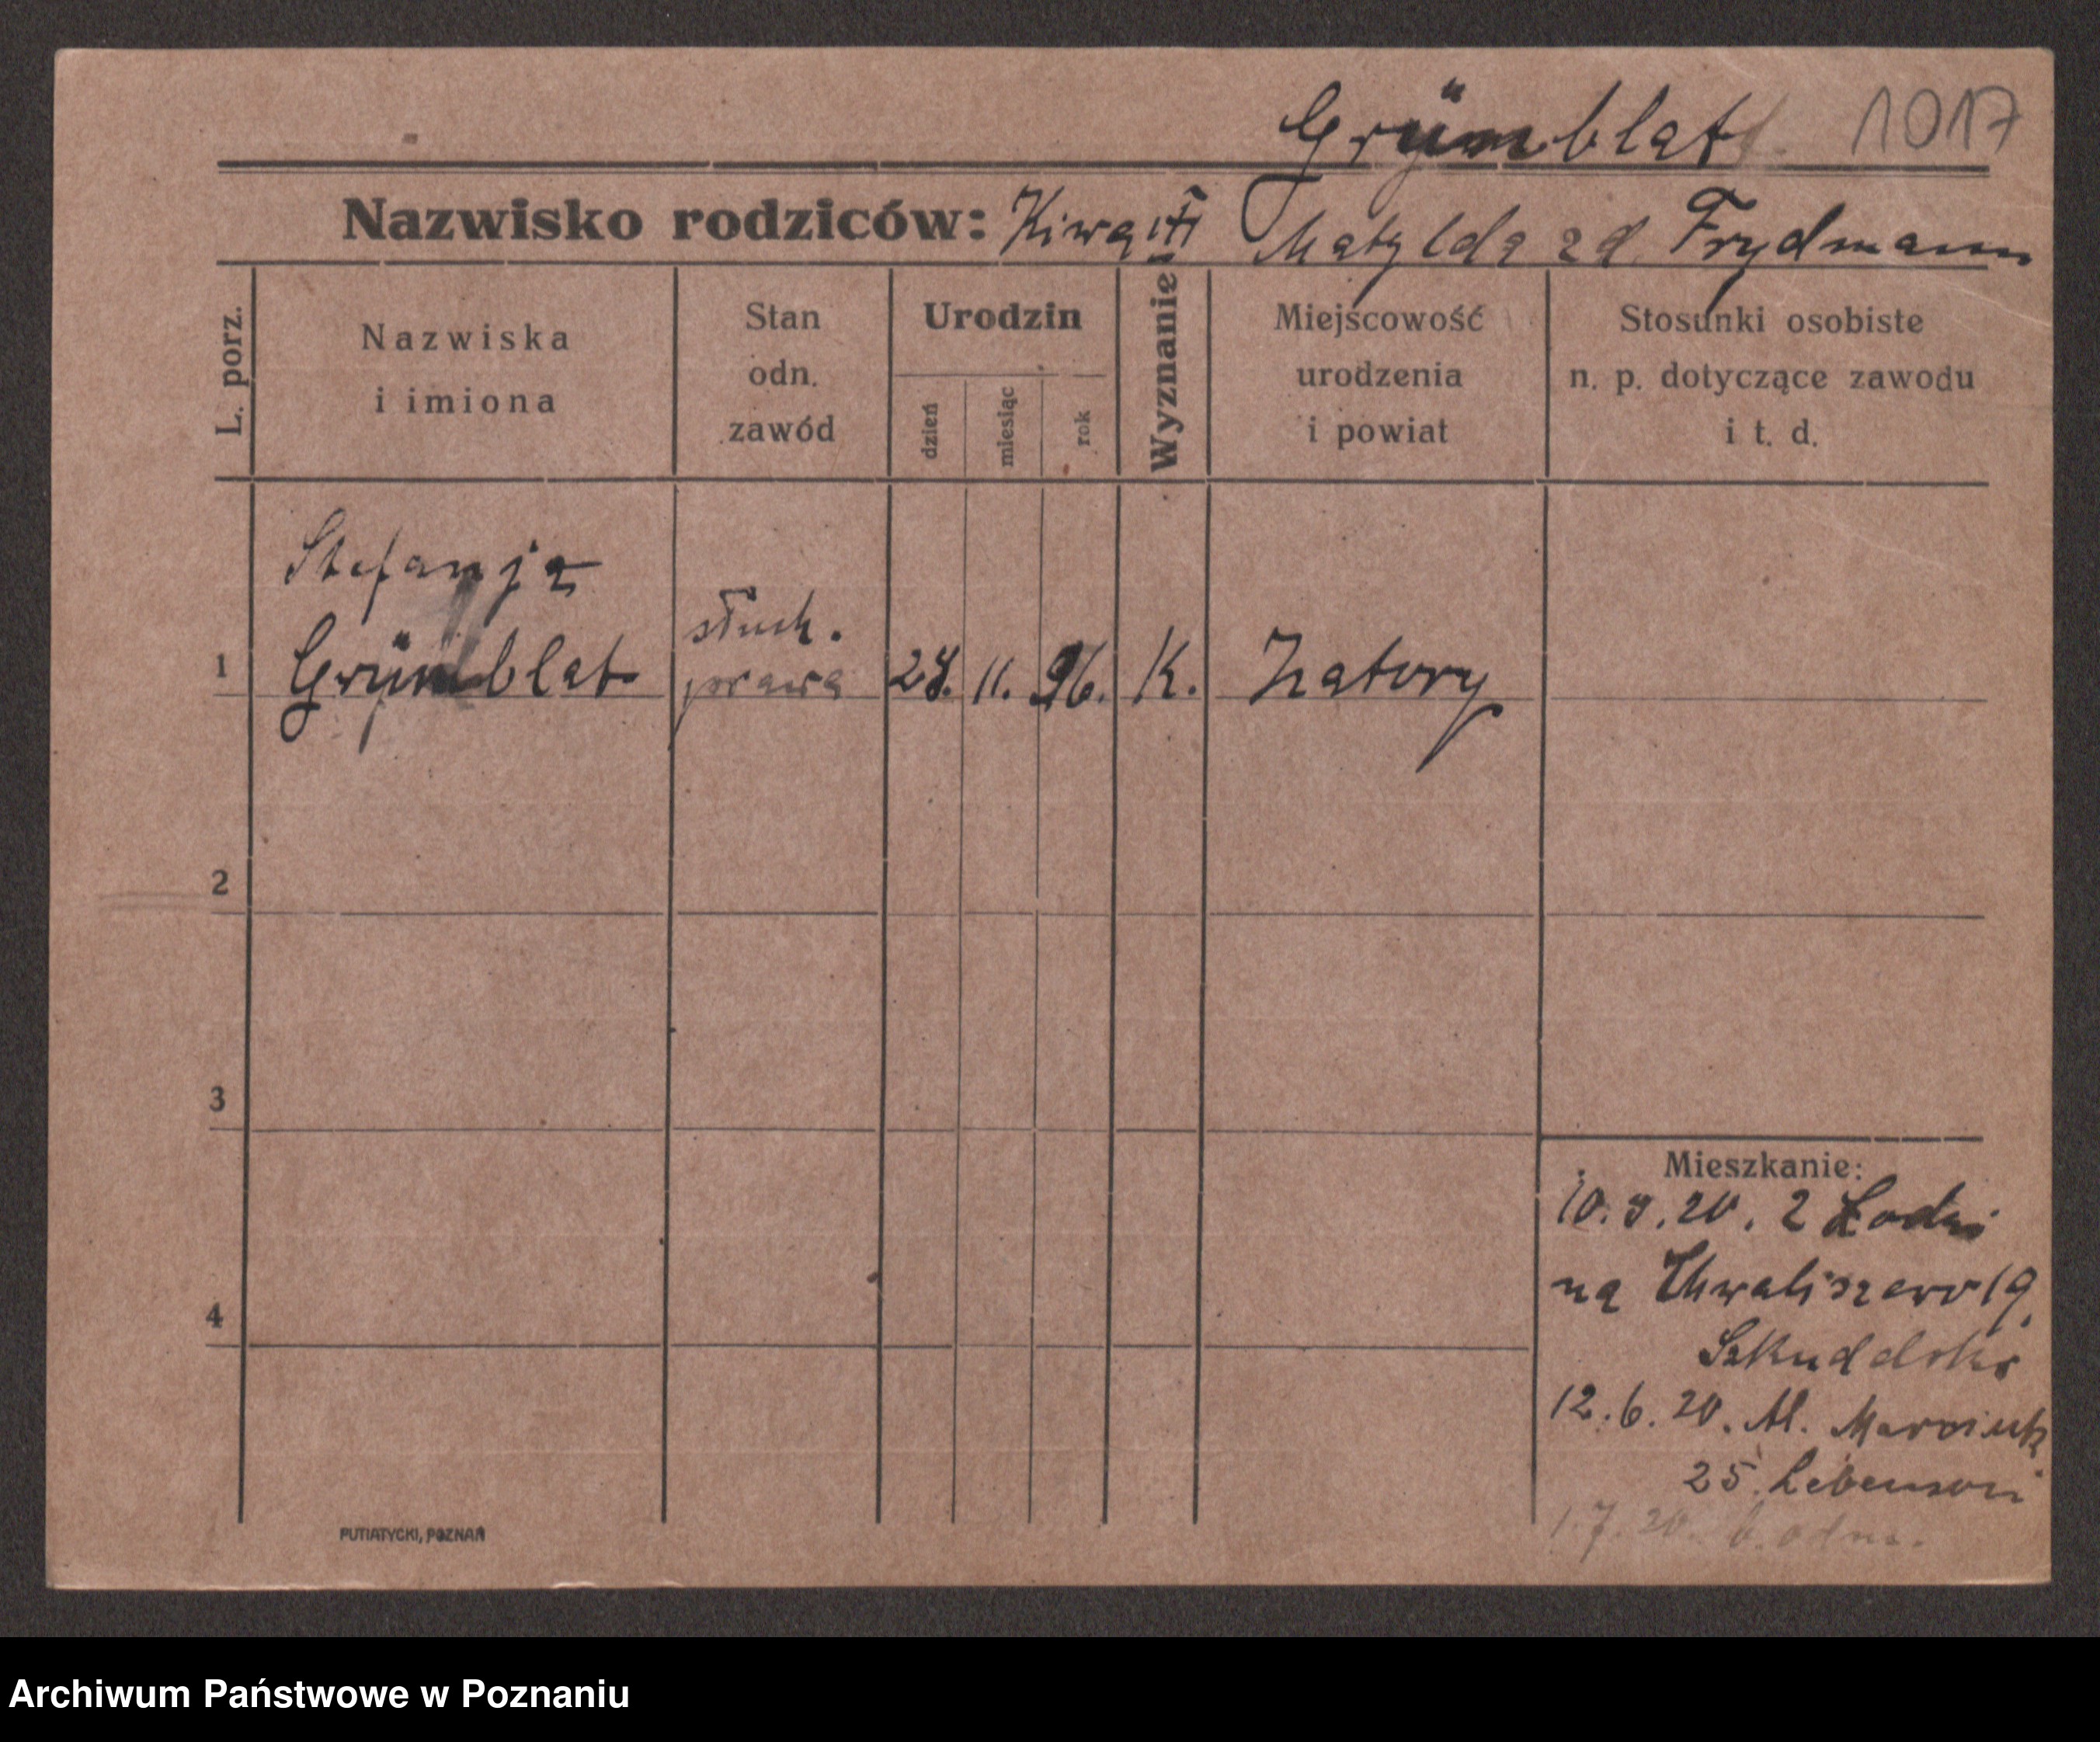 Grünblat 1017
Nazwisko rodziców: Kiwa i Matylda z d. Frydmann
L. porz.
Nazwiska
i imiona
Stan
odn.
zawód
Urodzin
dzień
miesiąc
rok
Wyznanie
Miejscowość
urodzenia
i powiat
Stosunki osobiste
n. p. dotyczące zawodu
i t. d.
Stefanja
słuch.
1 Grünblat prawa 28. 11. 96. K. Zatory
2
3
4
Mieszkanie:
10. 9. 20. z Łodzi
na Chwaliszewo 19.
12. 6. 20. Al. Marcink
25.
1. 7. 20.
PUTIATYCKI, POZNAŃ
Archiwum Państwowe w Poznaniu